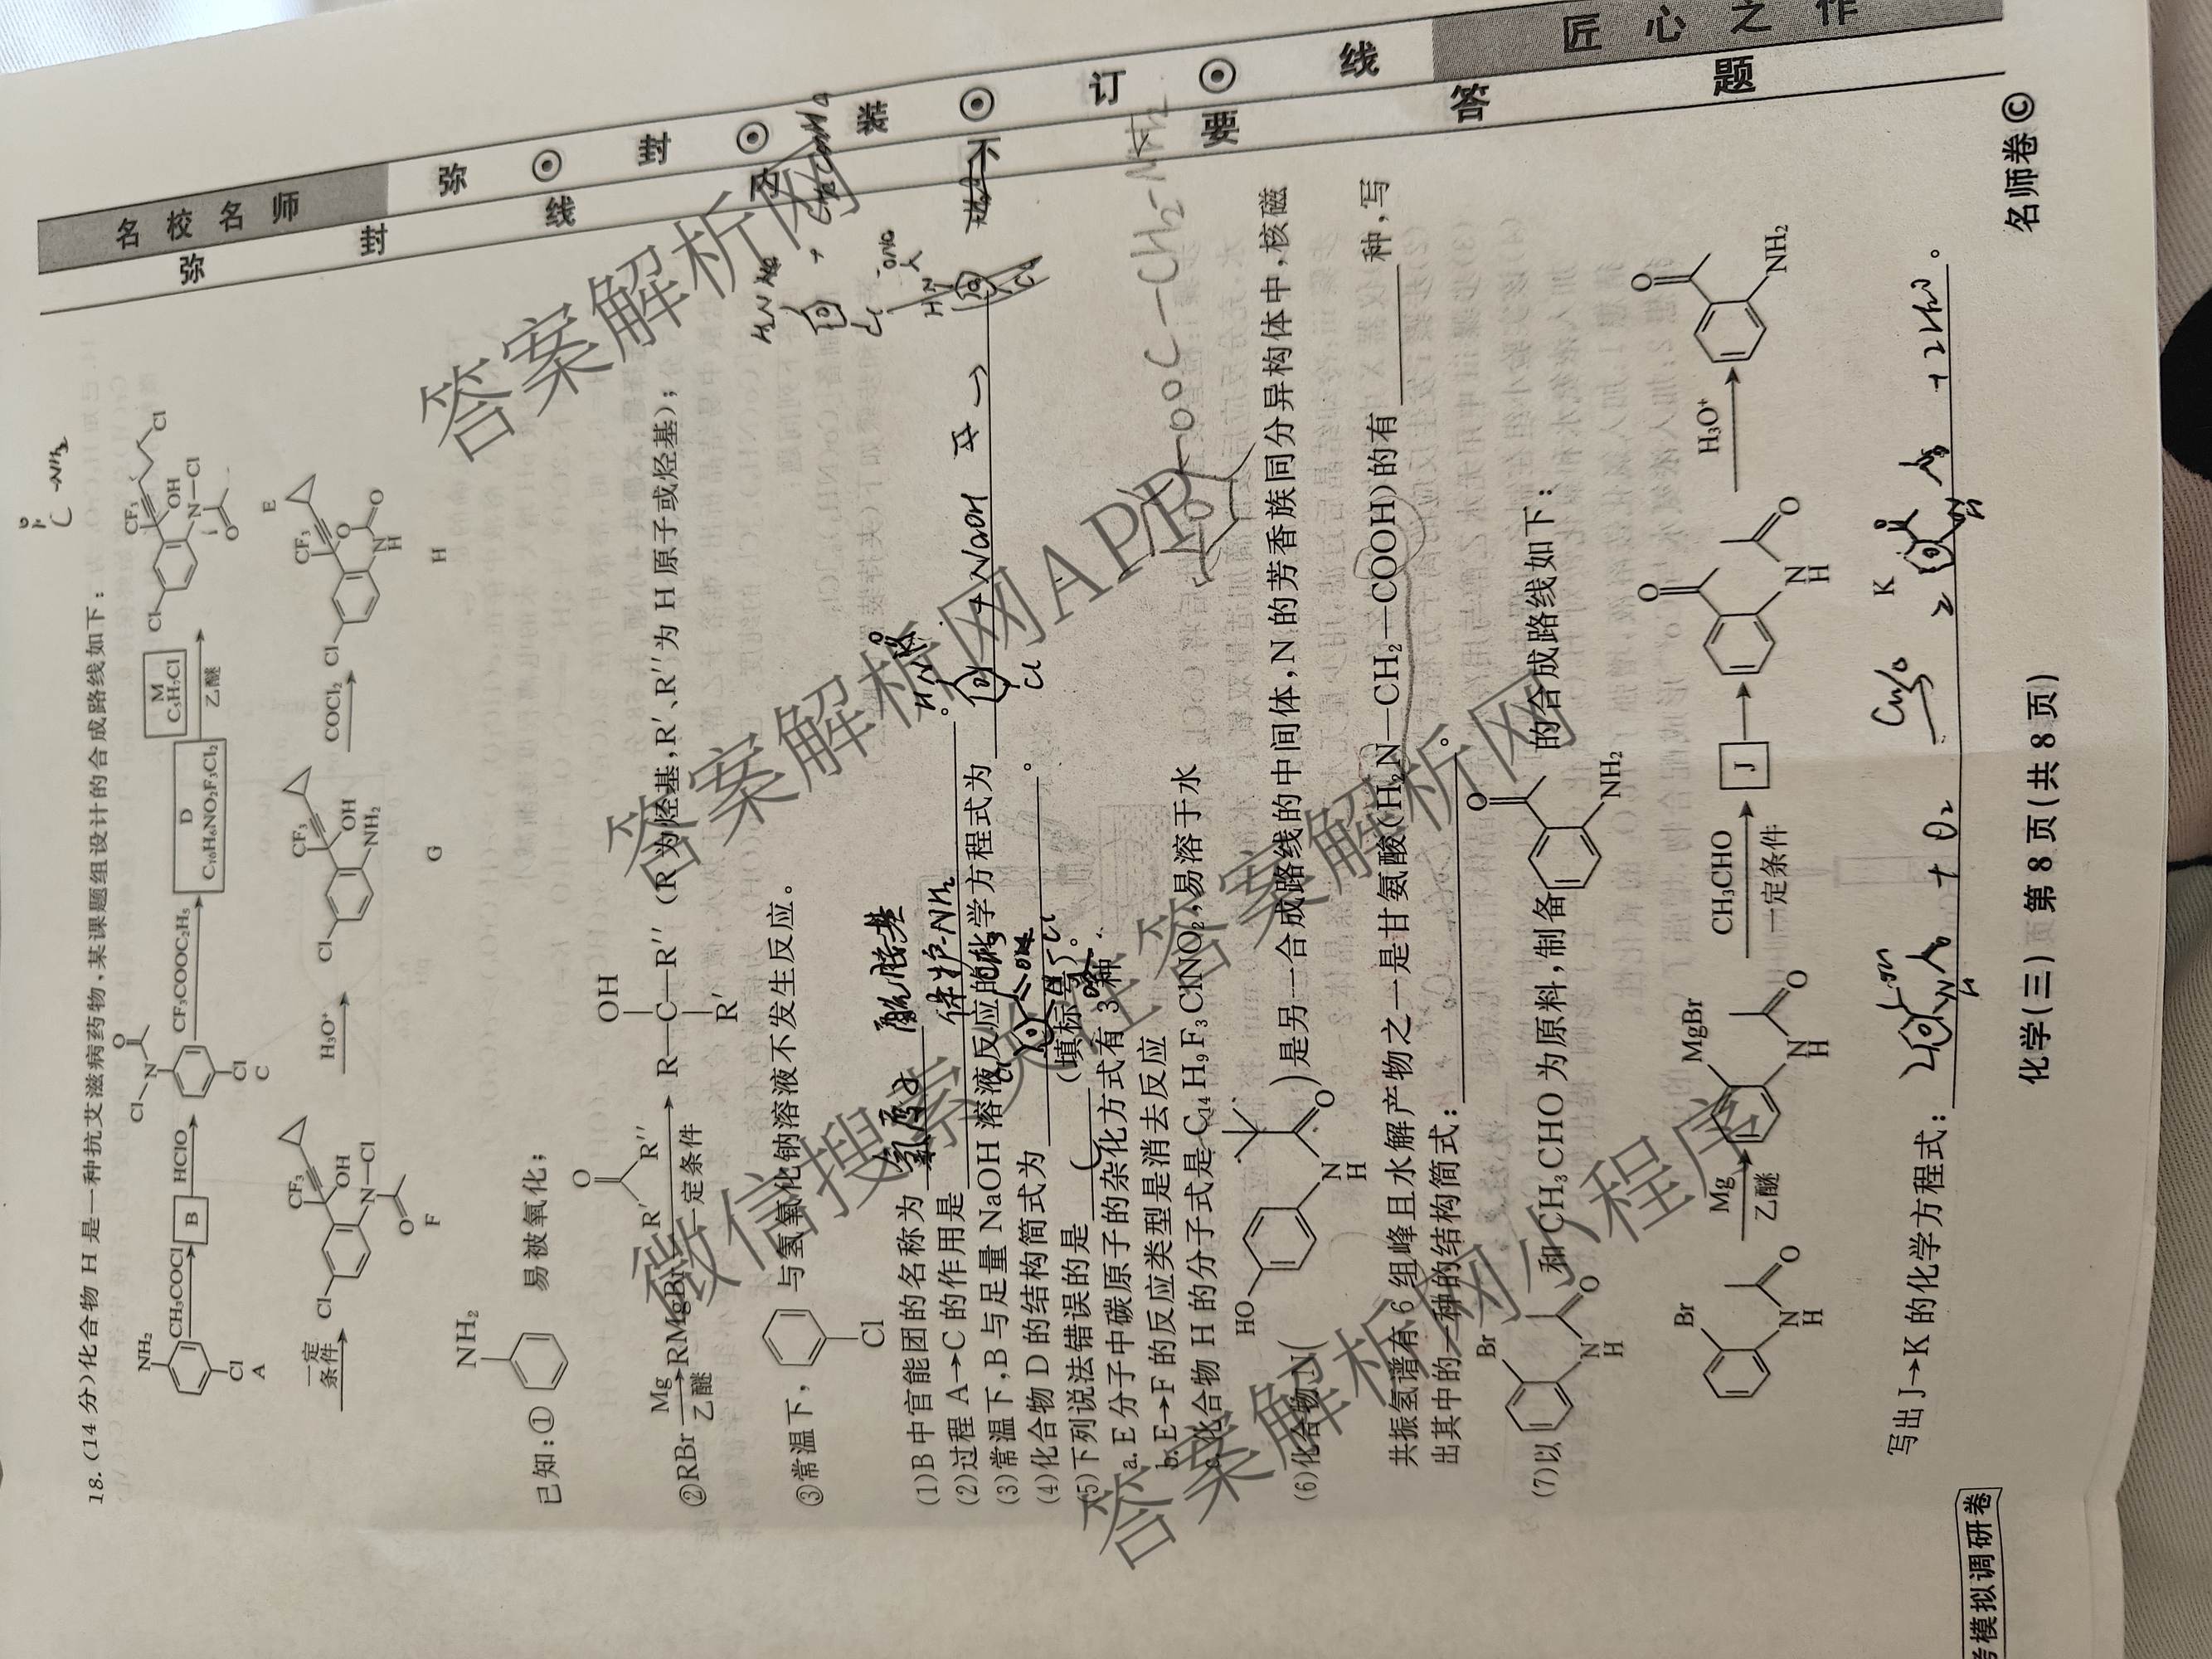 18.(14分)化合物H是一种抗艾滋病药物,某课题组设计的合成路线如下:
NH₂ Cl A CH₃COCl B HClO Cl N O Cl C CF₃COOC₂H₅ D C₁₀H₆NO₂F₃Cl₂ M C₅H₇Cl 乙醚 Cl CF₃ OH N—Cl O Cl E
一定条件 Cl CF₃ OH N—Cl O F H₃O⁺ Cl CF₃ OH NH₂ G COCl₂ Cl CF₃ O N H O H
已知:① NH₂ 易被氧化;
②RBr Mg 乙醚 RMgBr O R′ R″ 一定条件 OH R—C—R″ R′ (R为烃基,R′、R″为H原子或烃基);
③常温下, Cl 与氢氧化钠溶液不发生反应。
(1)B中官能团的名称为 氯原子 酰胺基 。
(2)过程A→C的作用是 保护-NH₂ 。
(3)常温下,B与足量NaOH溶液反应的化学方程式为 + NaOH → 。
(4)化合物D的结构简式为 。
(5)下列说法错误的是 (填标号)。
a.E分子中碳原子的杂化方式有3种
b.E→F的反应类型是消去反应
c.化合物H的分子式是C₁₄H₉F₃ClNO₂,易溶于水
(6)化合物N( HO N H O )是另一合成路线的中间体,N的芳香族同分异构体中,核磁
共振氢谱有6组峰且水解产物之一是甘氨酸(H₂N—CH₂—COOH)的有 种,写
出其中的一种的结构简式: 。
(7)以 Br N H O 和CH₃CHO为原料,制备 O NH₂ 的合成路线如下:
Br N H O Mg 乙醚 MgBr N H O CH₃CHO 一定条件 J O N H O K H₃O⁺ O NH₂
写出J→K的化学方程式: 2 + O₂ Cu/Δ 2 + 2H₂O 。
化学(三) 第8页(共8页)
名师卷©
考模拟调研卷
名校名师
弥 封 线
密 封 装 订 线
匠心之作
不 要 答 题
答案解析网
答案解析网APP
微信搜索
答案解析网小程序